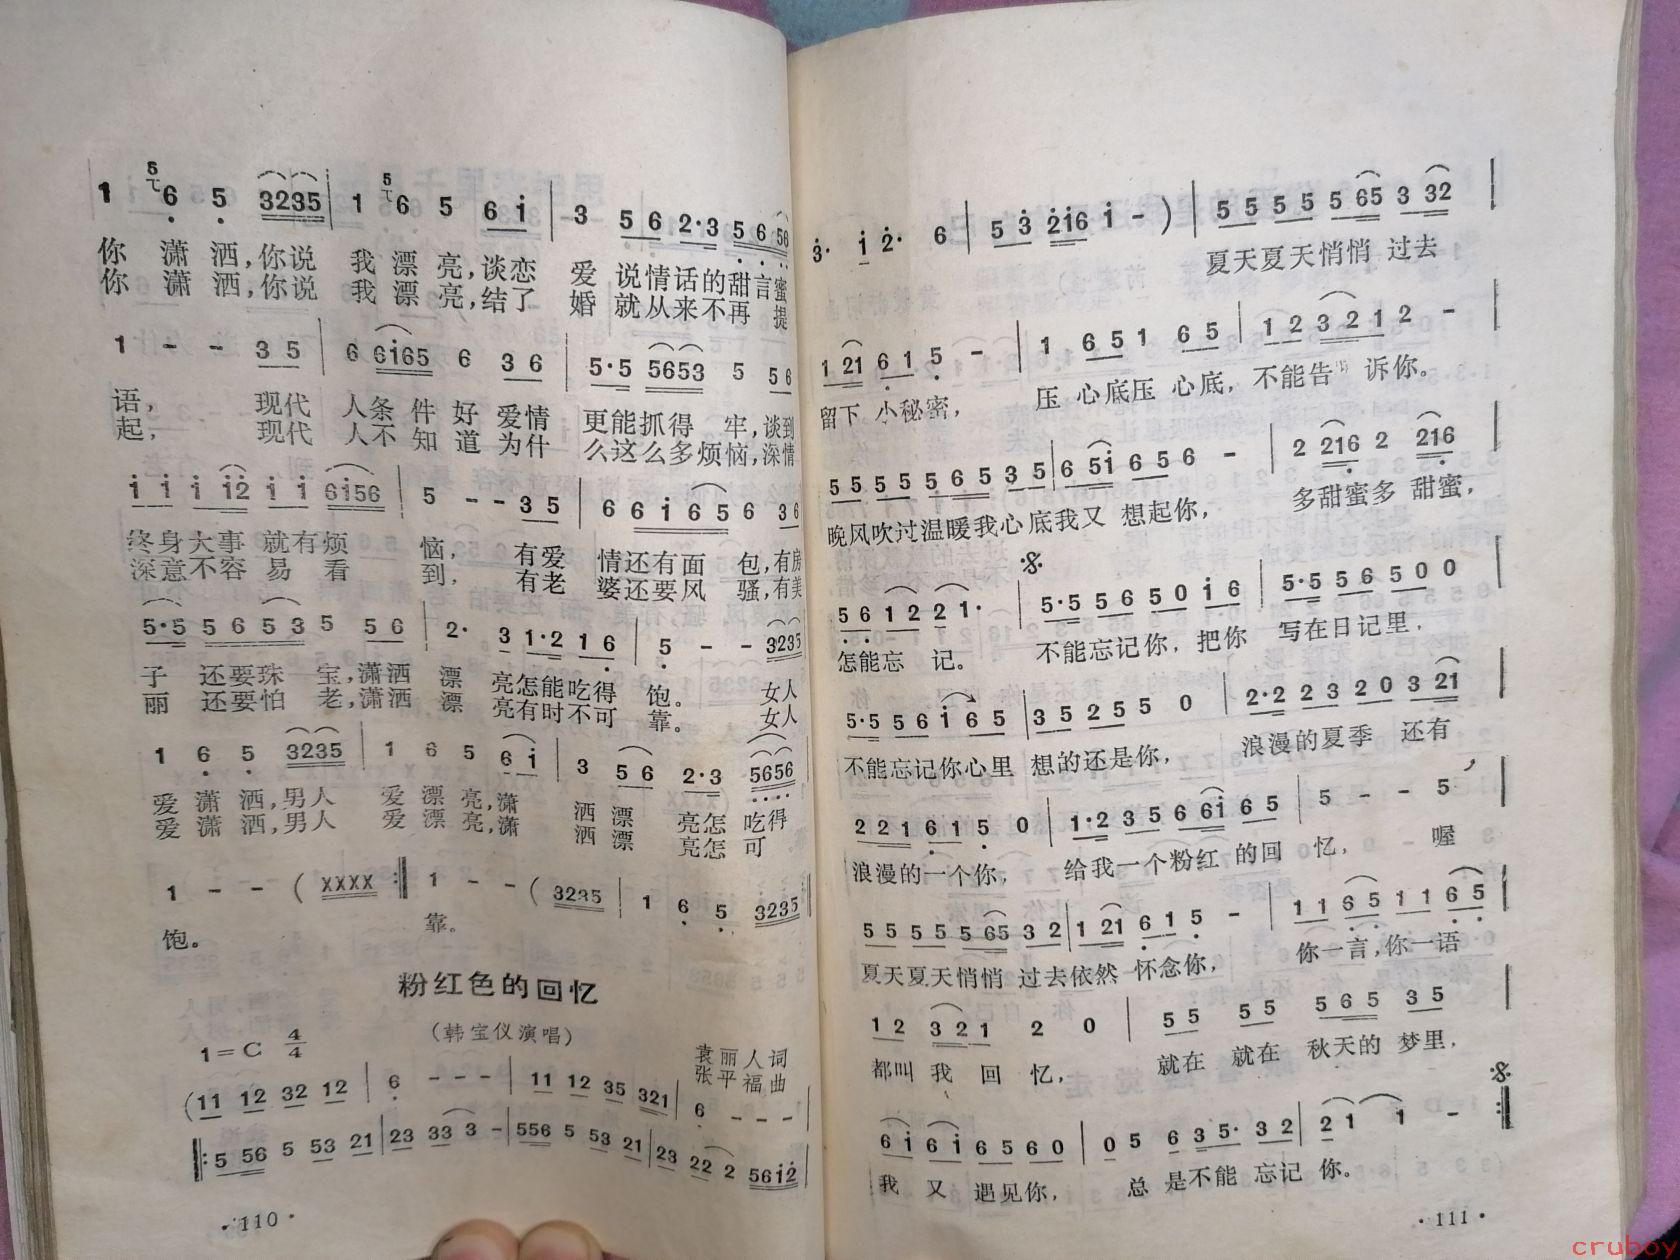 你 潇 洒,你说 我 漂 亮,谈恋 爱 说情话的甜言蜜
你 潇 洒,你说 我 漂 亮,结了 婚 就从来不再 提
1 - - 3 5 6 6i65 6 3 6 5·5 5653 5 5 6
语, 现代 人条 件 好 爱情 更能抓得 牢,谈到
起, 现代 人不 知 道 为什 么这么多烦恼,深情
终身大事 就有烦 恼, 有爱 情还有面 包,有房
深意不容 易 看 到, 有老 婆还要风 骚,有美
子 还要珠 宝,潇洒 漂 亮怎能吃得 饱。 女人
丽 还要怕 老,潇洒 漂 亮有时不可 靠。 女人
爱 潇 洒,男人 爱 漂 亮,潇 洒 漂 亮怎 吃得
爱 潇 洒,男人 爱 漂 亮,潇 洒 漂 亮怎 可
1 - - ( XXXX :‖ 1 - - ( 3235 1 6 5 3235
饱。 靠。
粉红色的回忆
(韩宝仪演唱)
1=C 4/4
袁丽人词
张平福曲
(11 12 32 12 6 - - - 11 12 35 321 6 - - -
‖: 5 56 5 53 21 23 33 3 - 556 5 53 21 23 22 2 56i2
·110·
3· i 2· 6 5 3 2i6 i - ) 5 5 5 5 5 65 3 32
夏天夏天悄悄 过去
1 21 6 1 5 - 1 6 5 1 6 5 1 2 3 2 1 2 -
留下 小秘密, 压 心底压 心底, 不能告 诉你。
5 5 5 5 5 6 5 3 5 6 5i 6 5 6 - 2 216 2 216
晚风吹过温暖我心 底我又 想起你, 多甜蜜多 甜蜜,
5 6 1 2 2 1· 5·5 5 6 5 0 i 6 5·5 5 6 5 0 0
怎能忘 记。 不能忘记你, 把你 写在日记里,
5·5 5 6 i 6 5 3 5 2 5 5 0 2·2 2 3 2 0 3 21
不能忘记你心里 想的还是你, 浪漫的夏季 还有
2 2 1 6 1 5 0 1·2 3 5 6 6i 6 5 5 - - 5
浪漫的一个你, 给我一个粉红 的回 忆, 喔
5 5 5 5 5 65 3 2 1 21 6 1 5 - 1 1 6 5 1 1 6 5
夏天夏天悄悄 过去依然 怀念你, 你一言,你一语
1 2 3 2 1 2 0 5 5 5 5 5 6 5 3 5
都叫 我 回 忆, 就在 就在 秋天的 梦里,
6 i 6 i 6 5 6 0 0 5 6 3 5· 3 2 2 1 1 - :‖
我 又 遇见你, 总 是不能 忘记 你。
·111·
cruboy